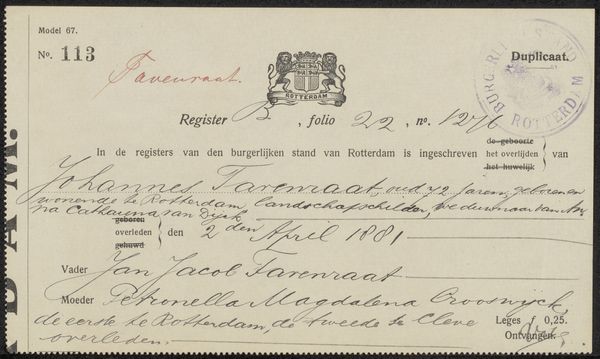 Model 67.
No. 113
Tavenraat.
ROTTERDAM
Duplicaat.
BURGERLIJKE STAND
ROTTERDAM
Register B, folio 22, no. 1276
In de registers van den burgerlijken stand van Rotterdam is ingeschreven
de geboorte
het overlijden
het huwelijk
van
Johannes Tavenraat, oud 72 jaren, geboren en
wonende te Rotterdam, landschapschilder, weduwnaar van An-
na Catharina van Dijck
geboren
overleden
gehuwd
den 2den April 1881
Vader Jan Jacob Tavenraat
Moeder Petronella Magdalena Crooswijck
de eerste te Rotterdam, de tweede te Cleve
overleden.
Leges f 0,25.
Ontvangen.
DAM.